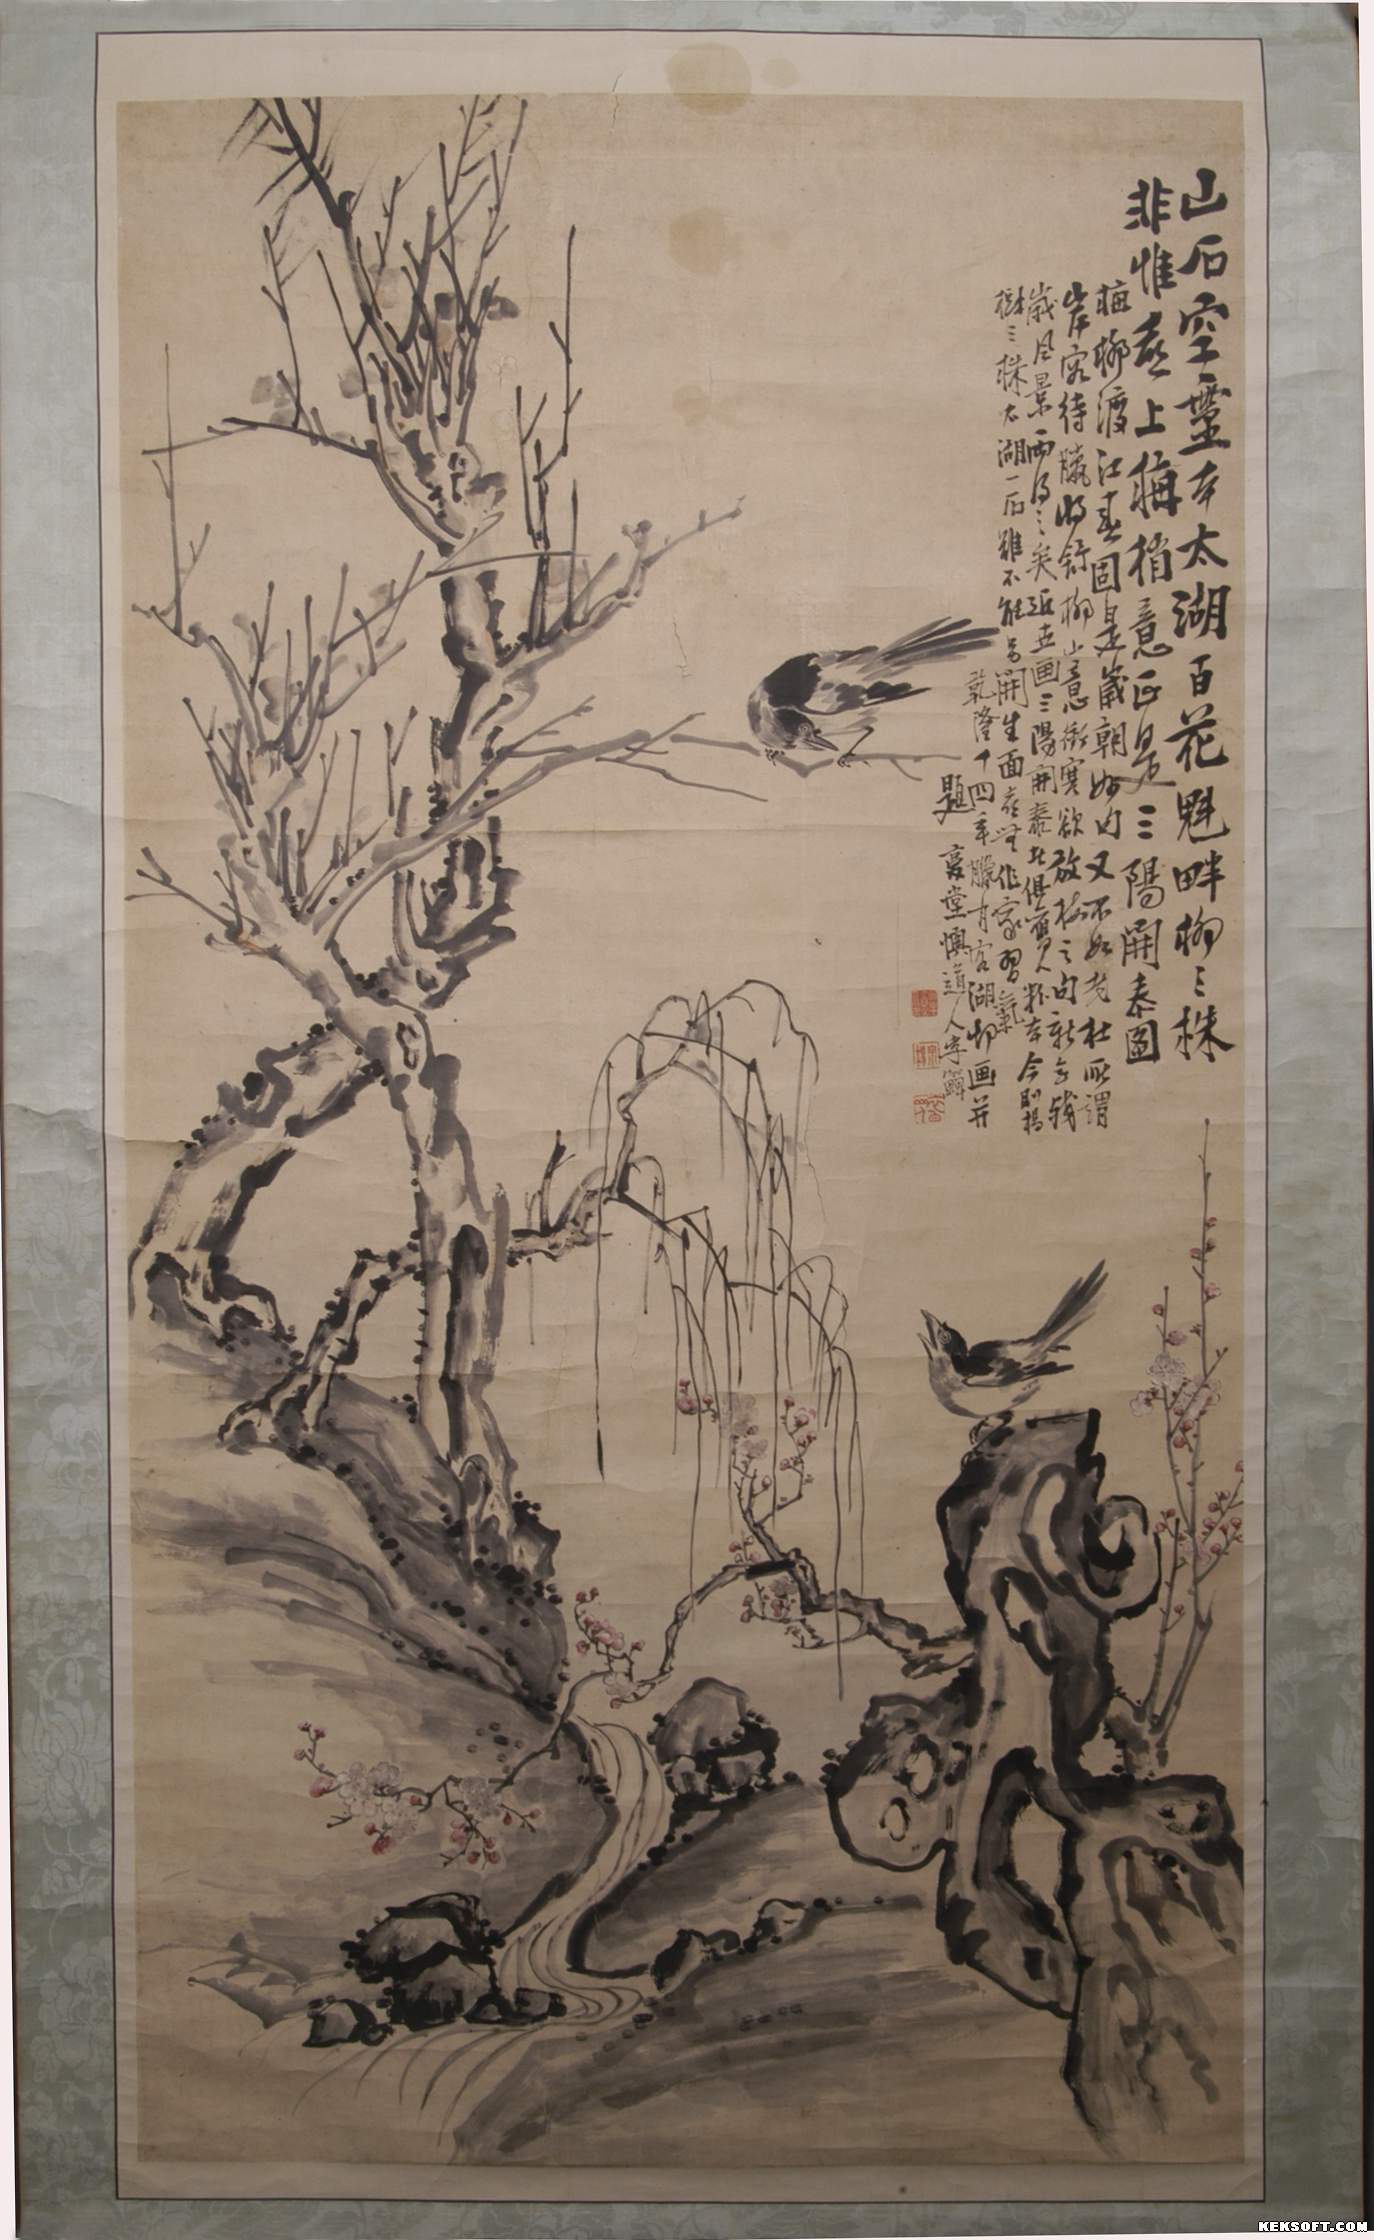 山石空靈本太湖百花魁畔柳三株
非惟春上梅梢意正是三陽開泰圖
梅柳渡江春固是歲朝好句又不如老杜所謂
岸容待臘將舒柳山意衝寒欲放梅之句新年殘
歲風景兩得之矣近世画三陽開泰者俱舊人粉本今則楊
樹三株太湖一石雖不能另開生面庶無作家習氣
乾隆十四年臘月客湖邨画并
題 道人李鱓
KEKSOFT.COM